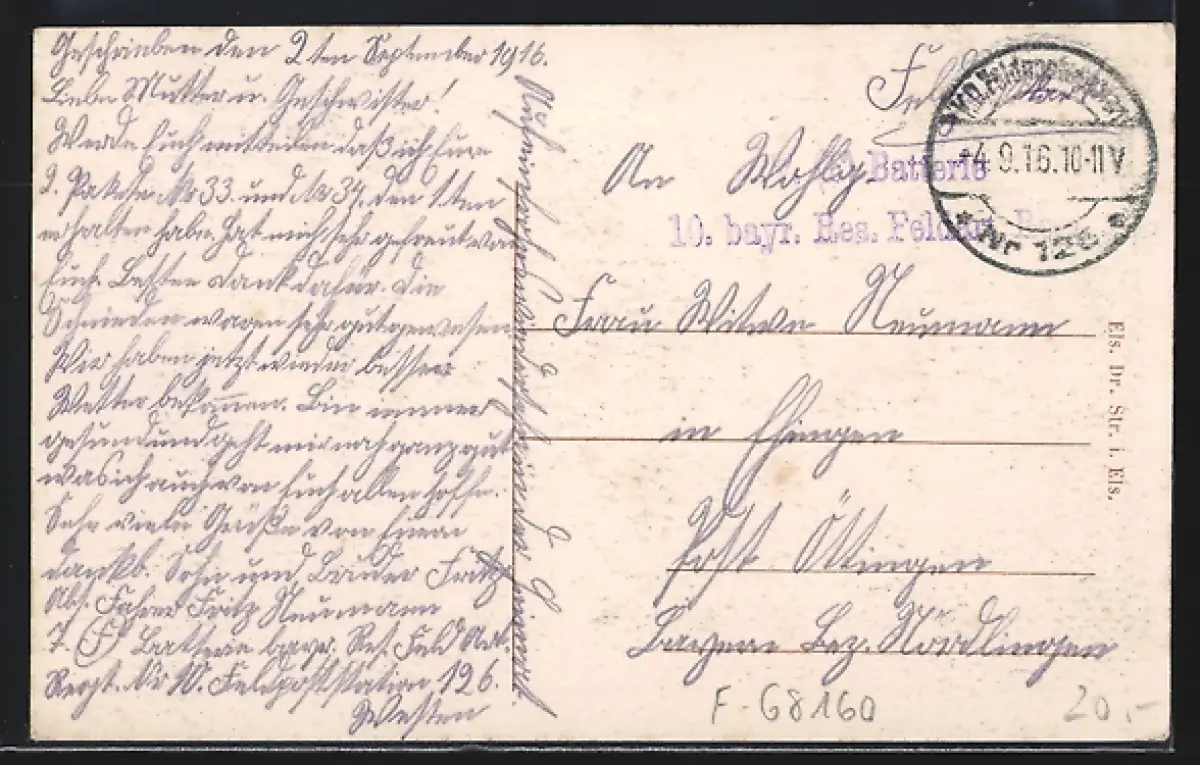 Geschrieben den 2ten September 1916.
Liebe Mutter u. Geschwister!
Werde Euch mitteilen daß ich Eure
2. Pakete Nr 33. und Nr 34. den 1ten
erhalten habe. Hat mich sehr gefreut von
Euch. Besten Dank dafür. Die
waren sehr gut gewesen
Wir haben jetzt wieder besser
Wetter bekommen. Bin immer
gesund und geht mir noch ganz gut
was ich auch von Euch allen hoffe.
Sehr viele Grüße von Euren
dankb. Sohn und Bruder Fritz
Abs. Fahrer Fritz Neumann
7. (F) Batterie bayr. Res. Feld Art.
Regt. Nr 10. Feldpoststation 126.
Westen
Auf ein der Heimat.
Feldpost
Batterie
10. bayr. Res. Feldart. Re
K.D. Feldpoststation
-4 9.16.10-11V
* Nr 126 *
An Wohlg.
Frau Witwe Neumann
in Ehingen
Post Öttingen
Bayern Bez. Nördlingen
Els. Dr. Str. i. Els.
F-G8160
20,-